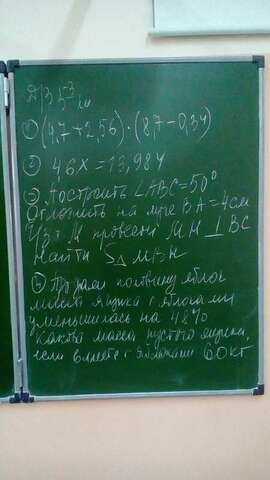 Д/З
① (4,7+2,56)·(8,7-0,34)
② 46x=13,984
③ Построить ∠ABC=50°
Отложить на луче BA=4см
Из т. M провести MH⊥BC
Найти S△ MBH
④ Продали половину яблок
масса ящика с яблоками
уменьшилась на 48%
Какова масса пустого ящика,
если вместе с яблоками 60кг